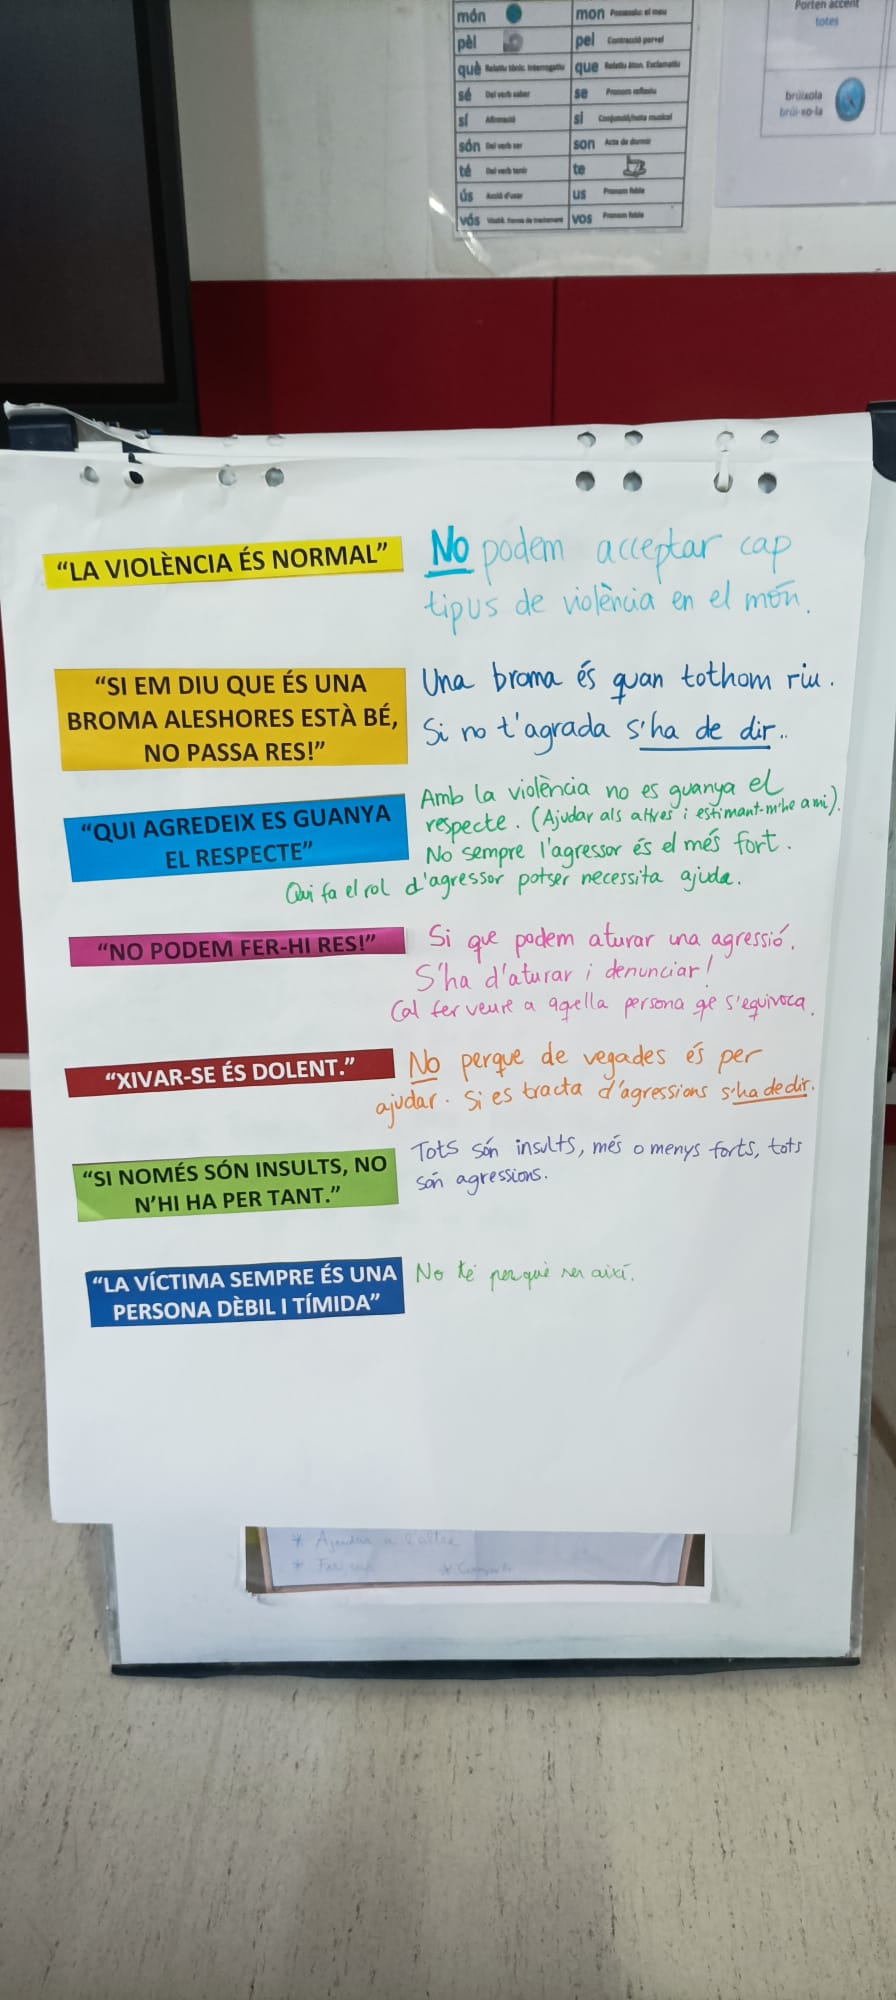 món mon Possessiu: el meu
pèl pel Contracció per+el
què Relatiu tònic. Interrogatiu que Relatiu àton. Exclamatiu
sé Del verb saber se Pronom reflexiu
sí Afirmació si Conjunció/nota musical
són Del verb ser son Acte de dormir
té Del verb tenir te
ús Acció d'usar us Pronom feble
vós Vostè. Forma de tractament vos Pronom feble
Porten accent
totes
brúixola
brúi-xo-la
“LA VIOLÈNCIA ÉS NORMAL”
No podem acceptar cap
tipus de violència en el món.
“SI EM DIU QUE ÉS UNA
BROMA ALESHORES ESTÀ BÉ,
NO PASSA RES!”
Una broma és quan tothom riu.
Si no t'agrada s'ha de dir..
“QUI AGREDEIX ES GUANYA
EL RESPECTE”
Amb la violència no es guanya el
respecte. (Ajudar als altres i estimant-m'he a mi).
No sempre l'agressor és el més fort.
Qui fa el rol d'agressor potser necessita ajuda.
“NO PODEM FER-HI RES!”
Si que podem aturar una agressió.
S'ha d'aturar i denunciar!
Cal fer veure a aqella persona qe s'equivoca.
“XIVAR-SE ÉS DOLENT.”
No perque de vegades és per
ajudar. Si es tracta d'agressions s'ha de dir.
“SI NOMÉS SÓN INSULTS, NO
N’HI HA PER TANT.”
Tots són insults, més o menys forts, tots
són agressions.
“LA VÍCTIMA SEMPRE ÉS UNA
PERSONA DÈBIL I TÍMIDA”
No té perquè ser així.
* Ajudar a l'altre